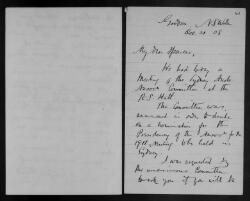 Gordon, N S Wales
Nov. 21 08
My dear Spencer,
We had today a
Meeting of the Sydney
Committee at the
R.S. Hall.
The Committee was,
summoned in order to decide
on a nomination for the
Presidency of the for the
1911 Meeting to be held in
Sydney.
I was requested by
the unanimous Committee
to ask you if you will be